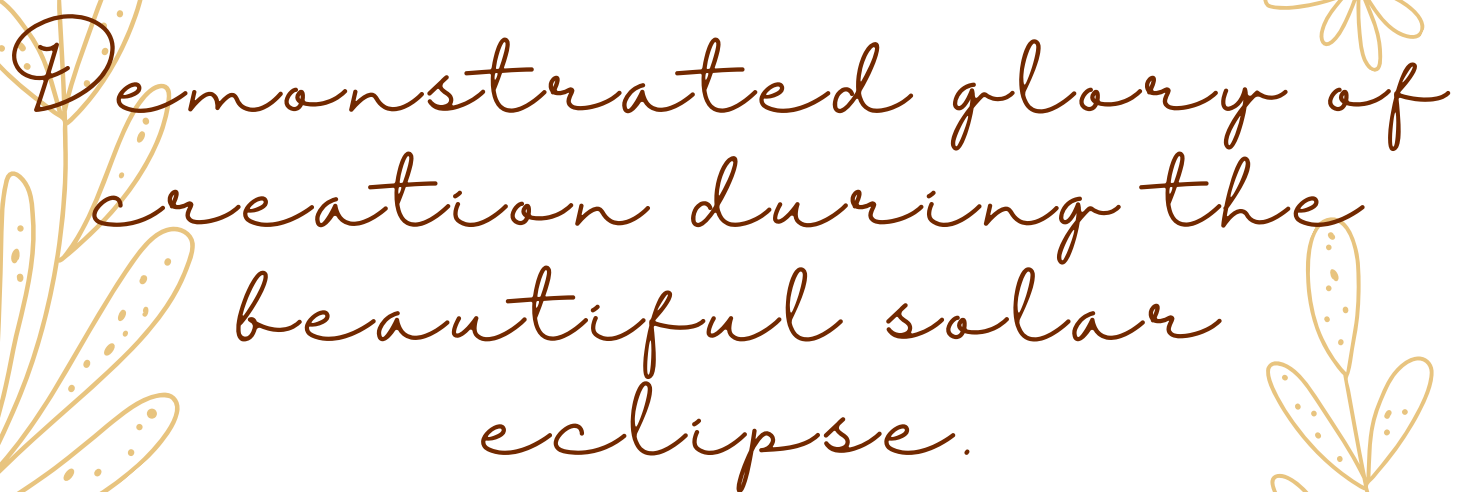 Demonstrated glory of
creation during the
beautiful solar
eclipse.